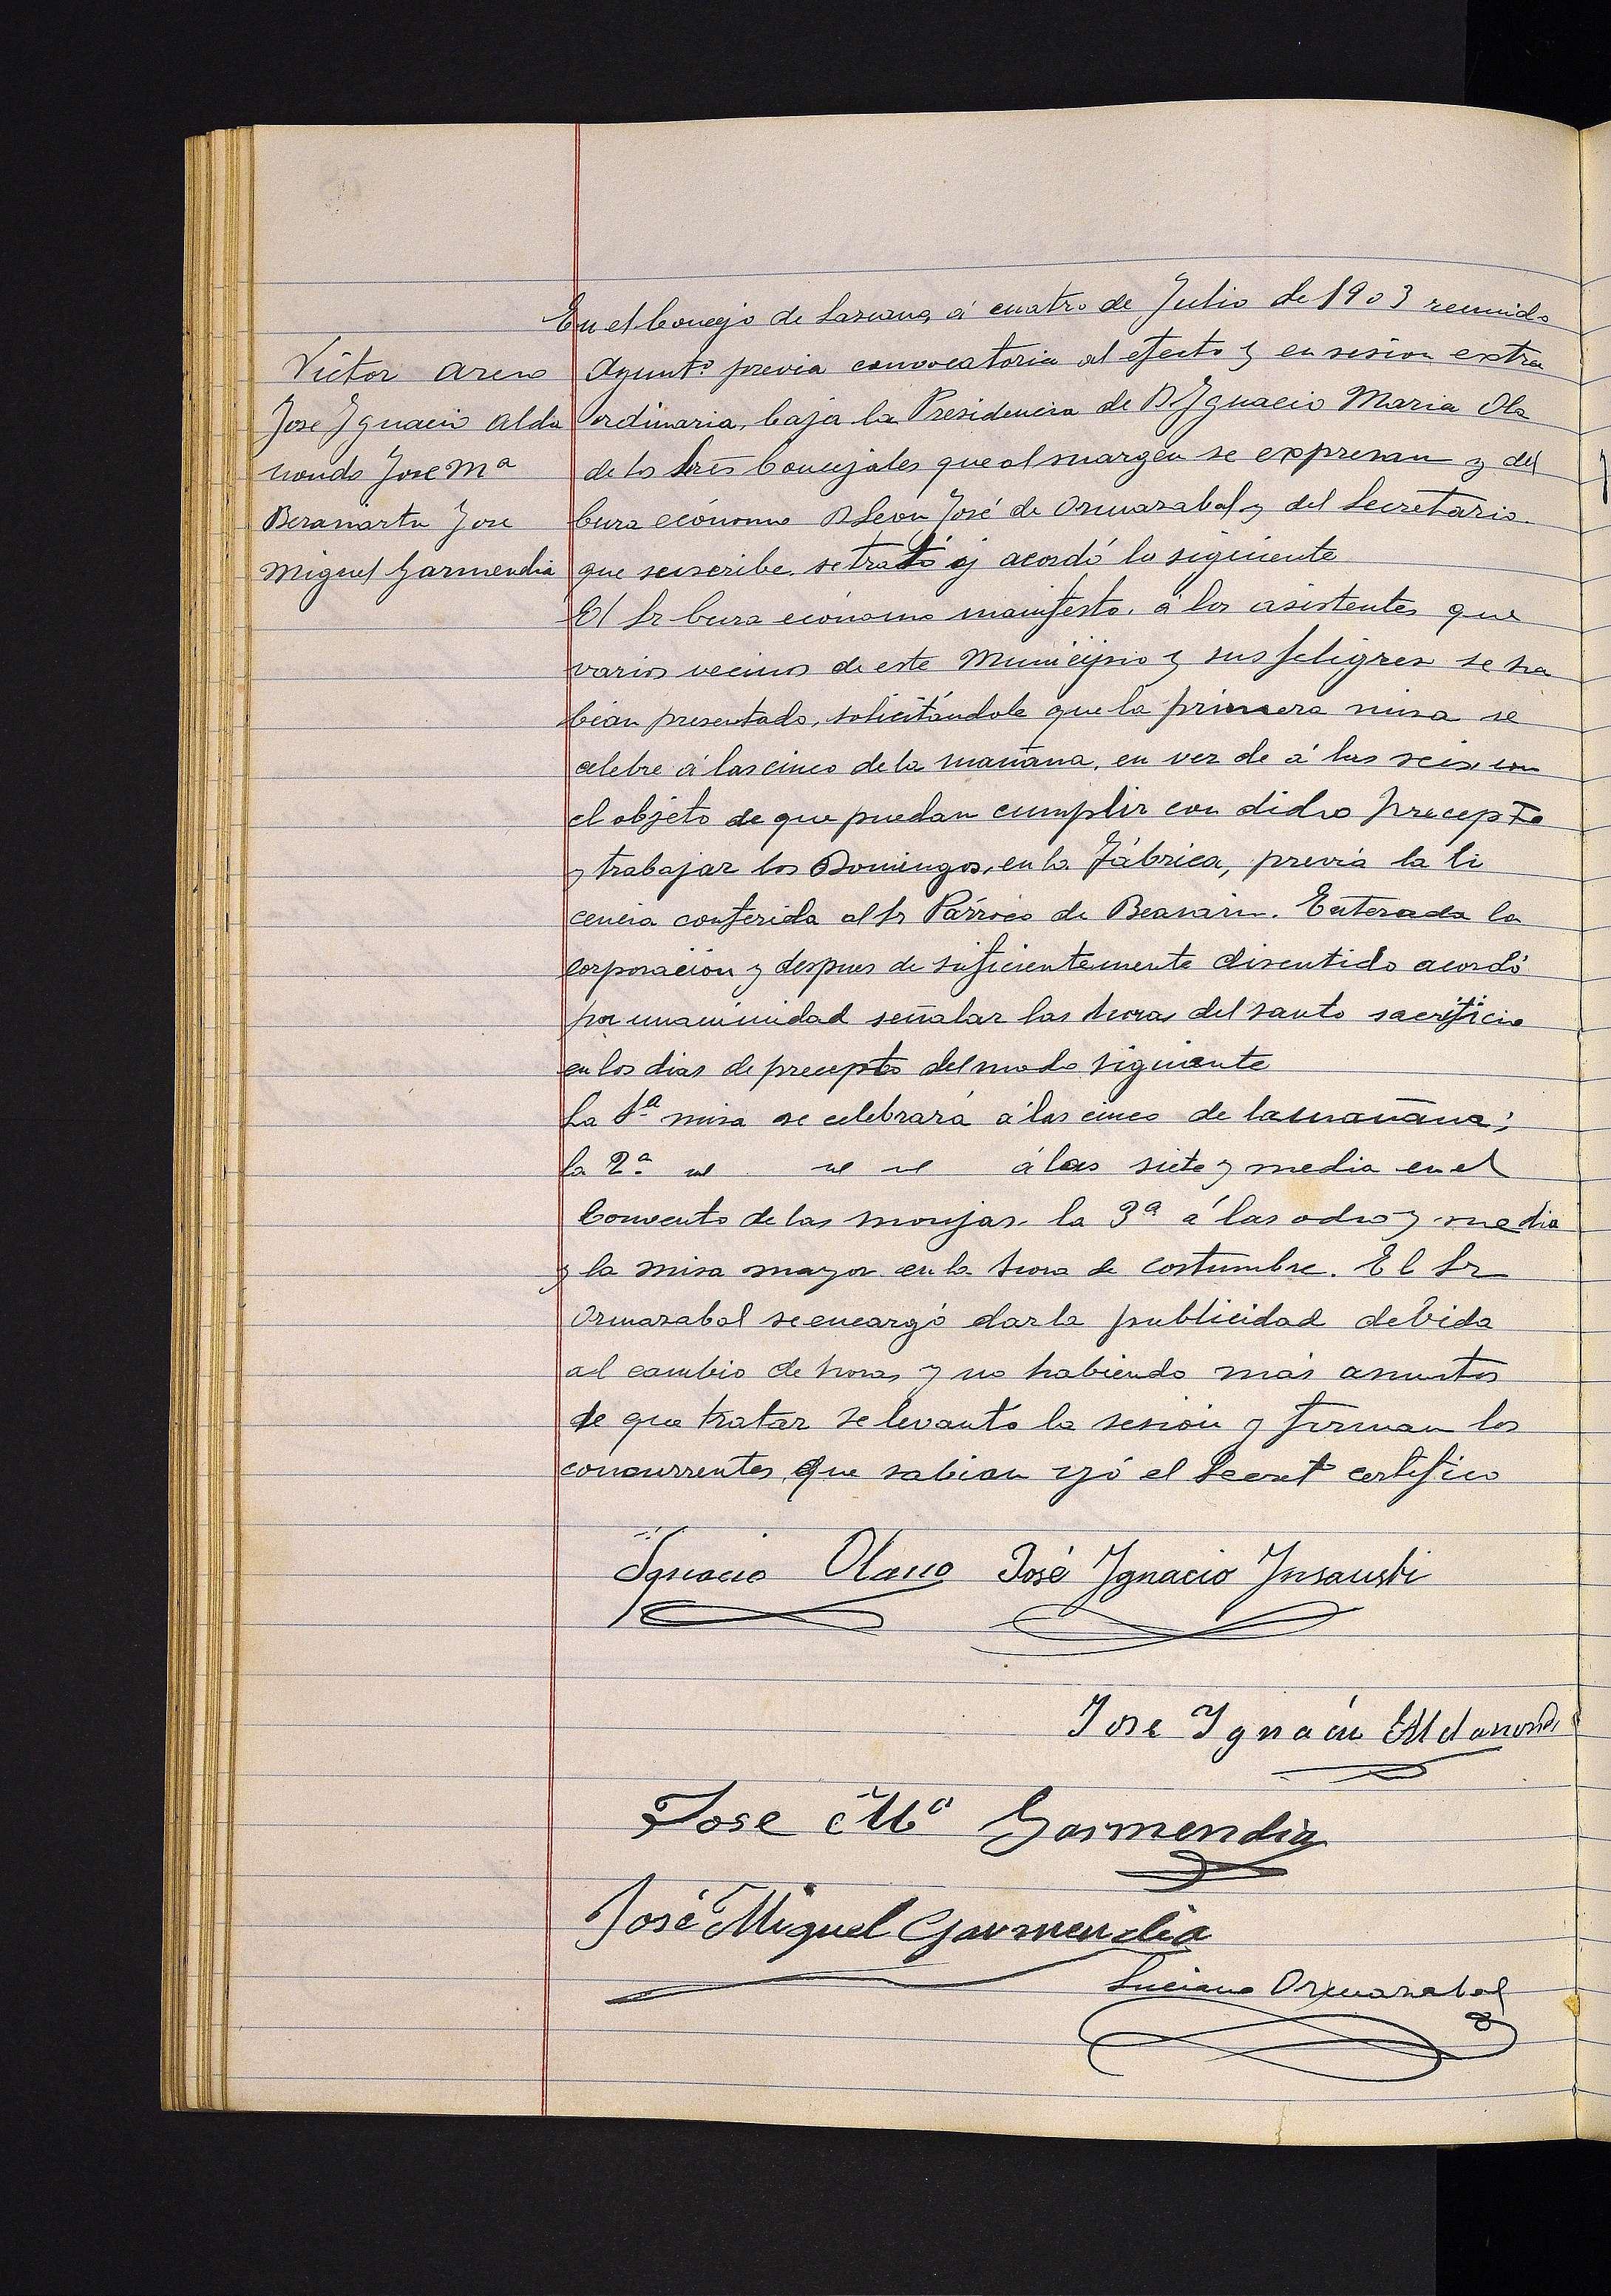 Victor Areno
Jose Ygnacio Alda
nondo Jose Mª
Berasiartu Jose
Miguel Garmendia
En el Concejo de Lazcano, á cuatro de Julio de 1903 reunido
Ayuntº previa convocatoria al efecto y en sesion extra
ordinaria, baja la Presidencia de D Ygnacio Maria Ola
de los Sres Concejales que al margen se expresan y del
Cura ecónomo D Leon José de Ormazabal y del Secretario
que suscribe, se trató y acordó lo siguiente
El Sr Cura económo manifesto, á los asistentes que
varios vecinos de este Municipio y sus feligres se ha
bian presentado, solicitándole que la primera misa se
celebre á las cinco de la mañana, en vez de á las seis, con
el objeto de que puedan cumplir con dicho precepto
y trabajar los Domingos, en la Fábrica, previa la li
cencia conferida al Sr Párroco de Beasain. Enterada la
corporación y despues de suficientemente discutido acordó
por unanimidad señalar las horas del santo sacrificio
en los dias de precepto del modo siguiente
La 1ª misa se celebrará á las cinco de la mañana;
la 2ª id id id á las siete y media en el
Convento de las monjas, la 3ª á las ocho y media
y la misa mayor en la hora de costumbre. El Sr
Ormazabal se encargó dar la publicidad debida
al cambio de horas y no habiendo más asuntos
de que tratar se levanto la sesión y firman los
concurrentes que sabian yó el Secret certifico
Ignacio Olano José Ygnacio Ynsausti
Jose Ygnacio Aldanondo
Jose Mª Garmendia
José Miguel Garmendia
Luciano Ormazabal